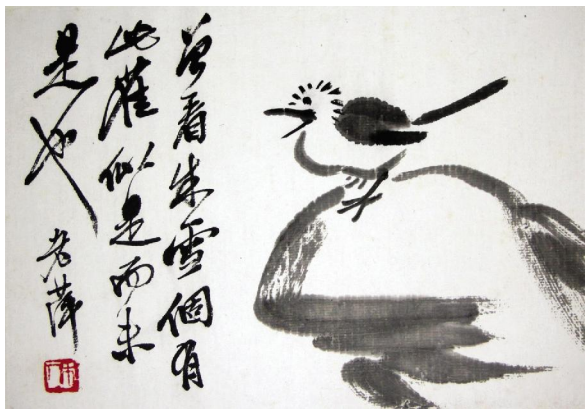 曾看朱雪個有
此雀似是而未
是也
老萍